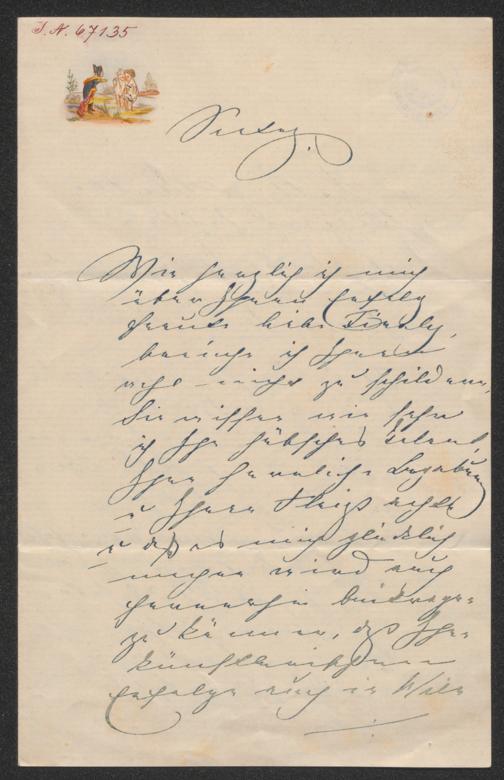 I. N. 67135
Sontag.
Wie herzlich ich mich
über Ihren Erfolg
freute liebe
brauche ich Ihnen
wohl nicht zu schildern,
Sie wissen wie sehr
ich Ihr hübsches Talent,
Ihre herrliche Begabung
u Ihren Fleiß achte
u daß es mich glücklich
machen wird auch
fernerhin beitragen
zu können, daß Ihre
künstlerischen
Erfolge auch in Wien